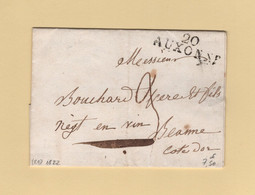 20
AUXONNE
Messieurs
Bouchard Pere et fils
Negt en vin
Beaune
Cote d'or
1822